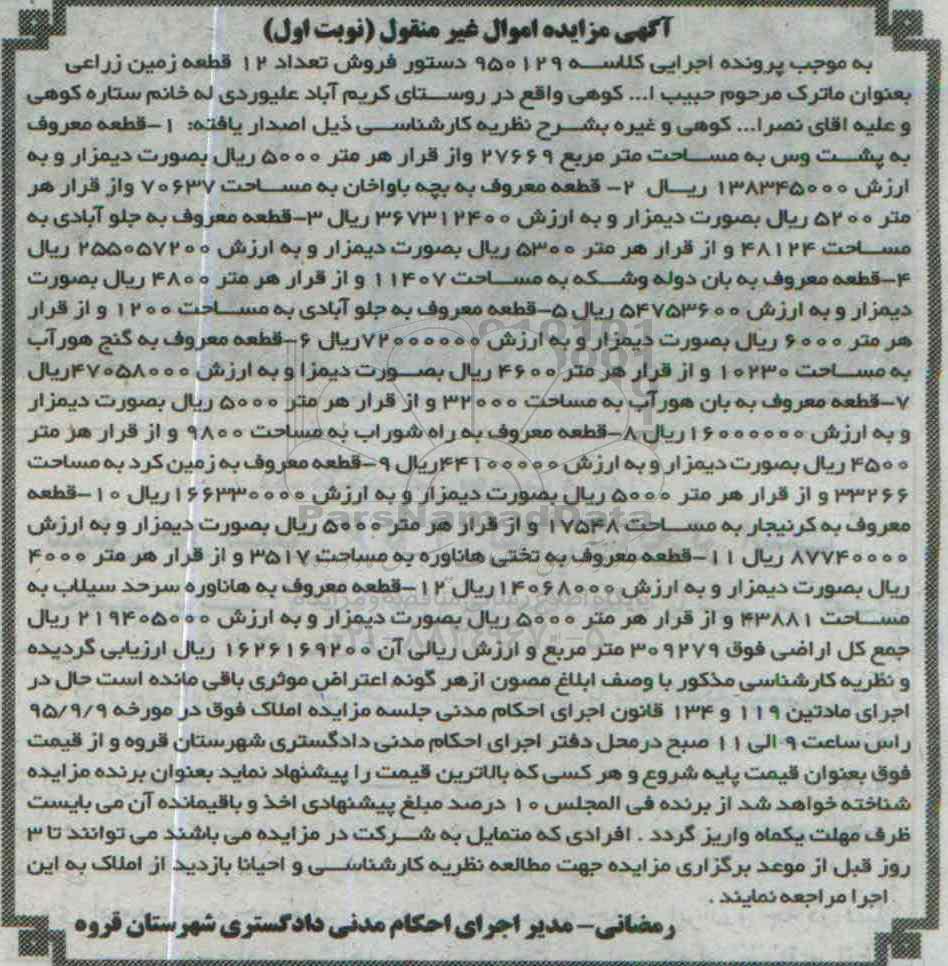 آگهی مزایده اموال غیر منقول (نوبت اول)
به موجب پرونده اجرایی کلاسه ۹۵۰۱۲۹ دستور فروش تعداد ۱۲ قطعه زمین زراعی
بعنوان ماترک مرحوم حبیب ا... کوهی واقع در روستای کریم آباد علیوردی له خانم ستاره کوهی
و علیه اقای نصرا... کوهی و غیره بشرح نظریه کارشناسی ذیل اصدار یافته: ۱-قطعه معروف
به پشت وس به مساحت متر مربع ۲۷۶۶۹ واز قرار هر متر ۵۰۰۰ ریال بصورت دیمزار و به
ارزش ۱۳۸۳۴۵۰۰۰ ریال ۲- قطعه معروف به بچه باواخان به مساحت ۷۰۶۳۷ واز قرار هر
متر ۵۲۰۰ ریال بصورت دیمزار و به ارزش ۳۶۷۳۱۲۴۰۰ ریال ۳-قطعه معروف به جلو آبادی به
مساحت ۴۸۱۲۴ و از قرار هر متر ۵۳۰۰ ریال بصورت دیمزار و به ارزش ۲۵۵۰۵۷۲۰۰ ریال
۴-قطعه معروف به بان دوله وشکه به مساحت ۱۱۴۰۷ و از قرار هر متر ۴۸۰۰ ریال بصورت
دیمزار و به ارزش ۵۴۷۵۳۶۰۰ ریال ۵-قطعه معروف به جلو آبادی به مساحت ۱۲۰۰ و از قرار
هر متر ۶۰۰۰ ریال بصورت دیمزار و به ارزش ۷۲۰۰۰۰۰۰ریال ۶-قطعه معروف به گنج هورآب
به مساحت ۱۰۲۳۰ و از قرار هر متر ۴۶۰۰ ریال بصورت دیمزا و به ارزش ۴۷۰۵۸۰۰۰ریال
۷-قطعه معروف به بان هورآب به مساحت ۳۲۰۰۰ و از قرار هر متر ۵۰۰۰ ریال بصورت دیمزار
و به ارزش ۱۶۰۰۰۰۰۰۰ریال ۸-قطعه معروف به راه شوراب به مساحت ۹۸۰۰ و از قرار هر متر
۴۵۰۰ ریال بصورت دیمزار و به ارزش ۴۴۱۰۰۰۰۰ریال ۹-قطعه معروف به زمین کرد به مساحت
۳۳۲۶۶ و از قرار هر متر ۵۰۰۰ ریال بصورت دیمزار و به ارزش ۱۶۶۳۳۰۰۰۰ریال ۱۰-قطعه
معروف به کرنیجار به مساحت ۱۷۵۴۸ و از قرار هر متر ۵۰۰۰ ریال بصورت دیمزار و به ارزش
۸۷۷۴۰۰۰۰ ریال ۱۱-قطعه معروف به تختی هاناوره به مساحت ۳۵۱۷ و از قرار هر متر ۴۰۰۰
ریال بصورت دیمزار و به ارزش ۱۴۰۶۸۰۰۰ریال ۱۲-قطعه معروف به هاناوره سرحد سیلاب به
مساحت ۴۳۸۸۱ و از قرار هر متر ۵۰۰۰ ریال بصورت دیمزار و به ارزش ۲۱۹۴۰۵۰۰۰ ریال
جمع کل اراضی فوق ۳۰۹۲۷۹ متر مربع و ارزش ریالی آن ۱۶۲۶۱۶۹۲۰۰ ریال ارزیابی گردیده
و نظریه کارشناسی مذکور با وصف ابلاغ مصون ازهر گونه اعتراض موثری باقی مانده است حال در
اجرای مادتین ۱۱۹ و ۱۳۴ قانون اجرای احکام مدنی جلسه مزایده املاک فوق در مورخه ۹۵/۹/۹
راس ساعت ۹ الی ۱۱ صبح درمحل دفتر اجرای احکام مدنی دادگستری شهرستان قروه و از قیمت
فوق بعنوان قیمت پایه شروع و هر کسی که بالاترین قیمت را پیشنهاد نماید بعنوان برنده مزایده
شناخته خواهد شد از برنده فی المجلس ۱۰ درصد مبلغ پیشنهادی اخذ و باقیمانده آن می بایست
ظرف مهلت یکماه واریز گردد . افرادی که متمایل به شرکت در مزایده می باشند می توانند تا ۳
روز قبل از موعد برگزاری مزایده جهت مطالعه نظریه کارشناسی و احیانا بازدید از املاک به این
اجرا مراجعه نمایند .
رمضانی- مدیر اجرای احکام مدنی دادگستری شهرستان قروه
ParsNamadData